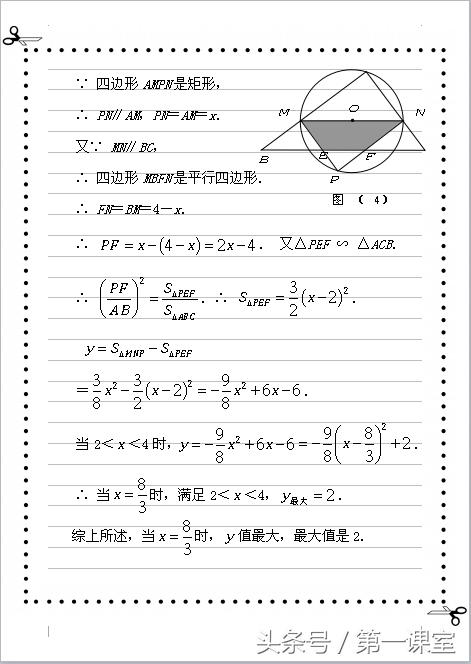 ∵ 四边形 AMPN 是矩形，
∴ PN∥AM，PN＝AM＝x.
又∵ MN∥BC，
∴ 四边形 MBFN 是平行四边形.
∴ FN＝BM＝4－x.
∴ PF＝x－(4－x)＝2x－4. 又△PEF ∽ △ACB.
∴ (PF/AB)²＝S△PEF/S△ABC. ∴ S△PEF＝3/2(x－2)².
y＝S△MNP－S△PEF
＝3/8x²－3/2(x－2)²＝－9/8x²＋6x－6.
当 2＜x＜4 时，y＝－9/8x²＋6x－6＝－9/8(x－8/3)²＋2.
∴ 当 x＝8/3 时，满足 2＜x＜4，y最大＝2.
综上所述，当 x＝8/3 时，y 值最大，最大值是 2.
M
O
N
B
E
F
P
图 （ 4）
头条号 / 第一课室